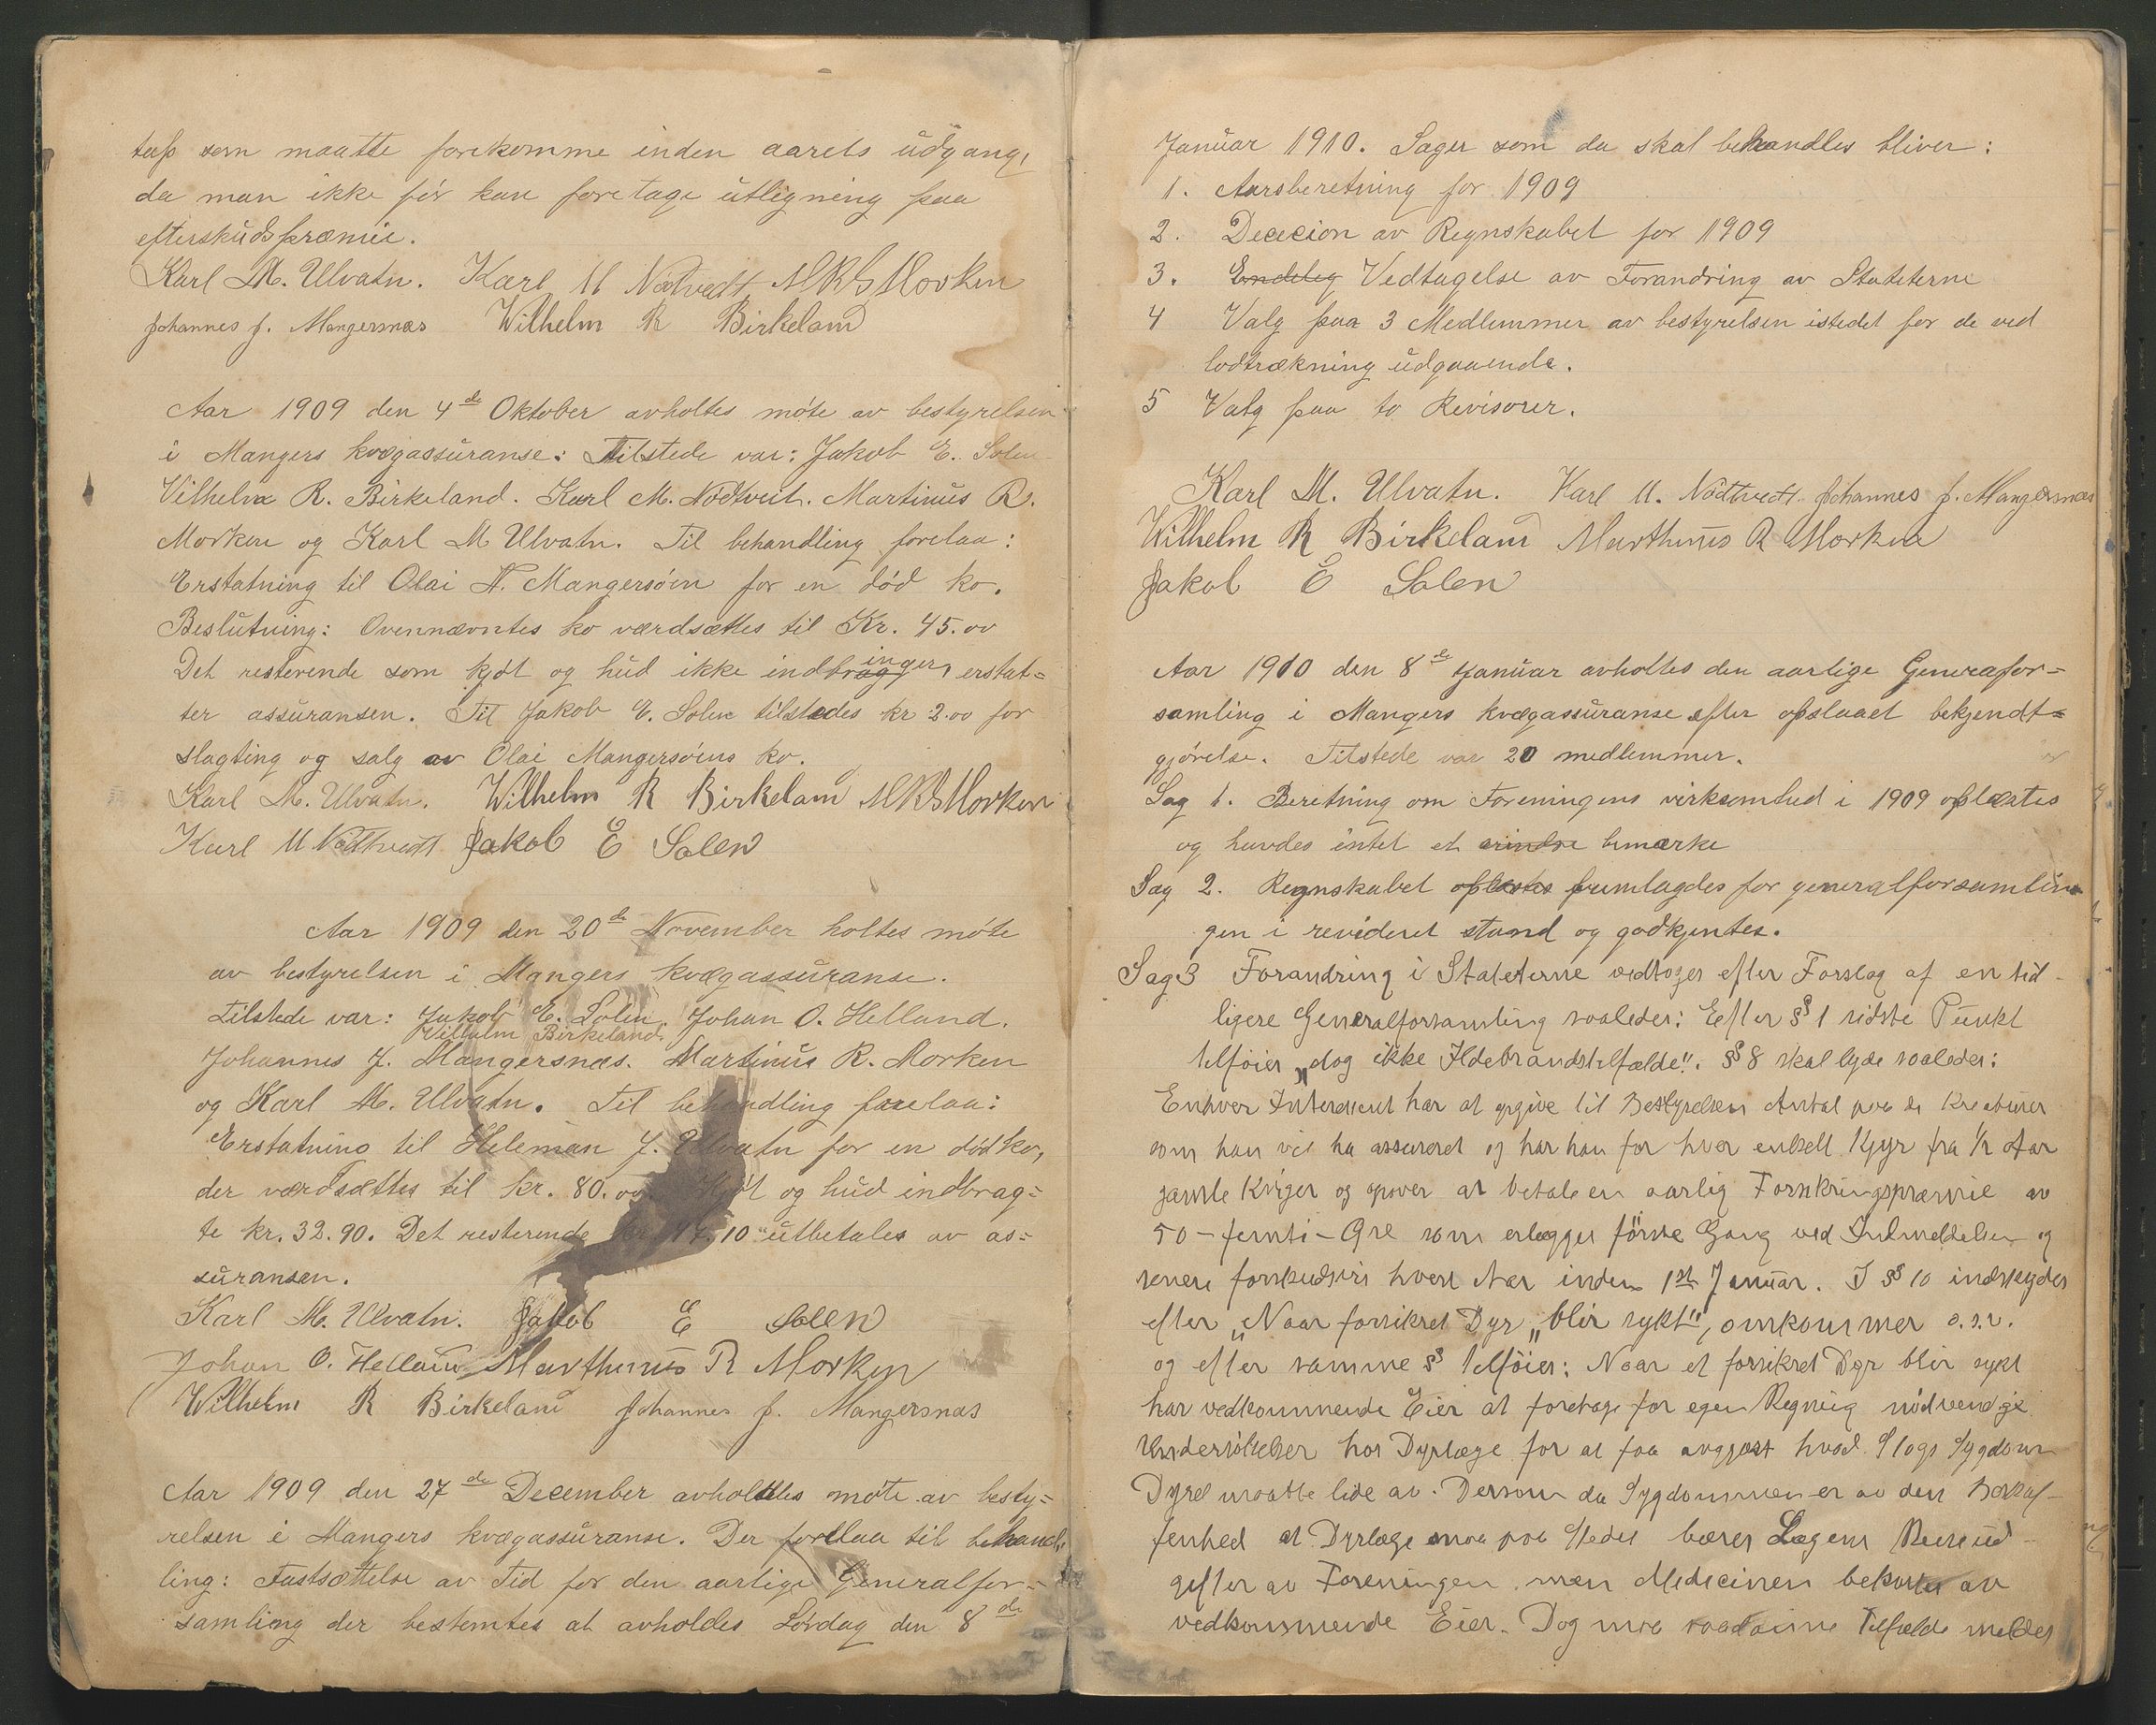 taps som maatte forekomme inden aarets udgang,
da man ikke før kan foretage utligning paa
efterskudspræmie.
Karl M. Ulvatn. Karl M Nødtvedt MRS Morken
Johannes J. Mangersnæs Wilhelm R Birkeland
Aar 1909 den 4de Oktober avholtes møte av bestyrelsen
i Mangers kvægassuranse: Tilstede var: Jakob E. Solen
Vilhelm R. Birkeland. Karl M. Nødtveit. Martinus R.
Morken og Karl M Ulvatn. Til behandling forelaa:
Erstatning til Olai N. Mangersøien for en død ko.
Beslutning: Ovennævntes ko værdsættes til Kr. 45.00
Det resterende som kjøt og hud ikke indbringer, erstat=
ter assuransen. Til Jakob E. Solen tilstedes kr 2.00 for
slagting og salg av Olai Mangersøiens ko.
Karl M. Ulvatn. Wilhelm R Birkeland MRS Morken
Karl M Nødtvedt Jakob E Solen
Aar 1909 den 20de November holtes møte
av bestyrelsen i Mangers kvægassuranse.
Tilstede var: Jakob E. Solen, Johan O. Helland.
Wilhelm Birkeland.
Johannes J. Mangersnæs. Martinus R. Morken
og Karl M. Ulvatn. Til behandling forelaa:
Erstatning til Heleman J. Ulvatn for en død ko,
der værdsættes til kr. 80.00. Kjøt og hud indbrag=
te kr. 32.90. Det resterende kr. 47.10 utbetales av as=
suransen.
Karl M. Ulvatn. Jakob E Solen
Johan O. Helland Marthinus R Morken
Wilhelm R Birkeland Johannes J. Mangersnæs
Aar 1909 den 27de December avholdtes møte av besty=
relsen i Mangers kvægassuranse. Der forelaa til behand=
ling: Fastsættelse av Tid for den aarlige Generalfor=
samling der bestemtes at avholdes Lørdag den 8de
Januar 1910. Sager som da skal behandles bliver:
1. Aarsberetning for 1909
2. Dececion av Regnskabet for 1909
3. Endelig Vedtagelse av Forandring av Stateterne
4 Valg paa 3 Medlemmer av bestyrelsen istedet for de ved
lodtrækning udgaaende.
5 Valg paa to Revisorer.
Karl M. Ulvatn. Karl M. Nødtvedt Johannes J. Mangersnæs
Wilhelm R Birkeland Marthinus R Morken
Jakob E Solen
Aar 1910 den 8de Januar avholtes den aarlige Generafor=
samling i Mangers kvægassuranse efter opslaaet bekjendt=
gjørelse. Tilstede var 20 medlemmer.
Sag 1. Beretning om Foreningens virksomhed i 1909 oplæstes
og havdes intet at erindre bemærke
Sag 2. Regnskabet oplæstes fremlagdes for generalforsamlin
gen i revideret stand og godkjentes.
Sag 3 Forandring i Stateterne vedtoges efter Forslag af en tid-
ligere Generalforsamling saaledes: Efter § 1 sidste Punkt
tilføies „dog ikke Ildebrandstilfælde". § 8 skal lyde saaledes:
Enhver Interessent har at opgive til Bestyrelsen Antal paa de Kreaturer
som han vil ha assureret og har han for hver enkelt Kjyr fra 1/2 Aar
gamle Kviger og opover at betale en aarlig Forsikringspræmie av
50 – femti – Øre som erlægges første Gang ved Indmeldelsen og
senere forskudsvis hvert Aar inden 1st Januar. I § 10 indskydes
efter „Naar forsikret Dyr „blir sykt", omkommer o.s.v.
og efter samme § tilføies: Naar et forsikret Dyr blir sykt
har vedkommende Eier at foretage for egen Regning nødvendige
Undersøkelser hos Dyrlæge for at faa avgjort hvad Slags Sygdom
Dyret maatte lide av. Dersom da Sygdommen er av den Beskaf-
fenhed at Dyrlæge maa paa Stedet bæres Lægens Reiseud-
gifter av Foreningen, men Medicinen bekostes av
vedkommende Eier. Dog maa saadanne Tilfælde meldes